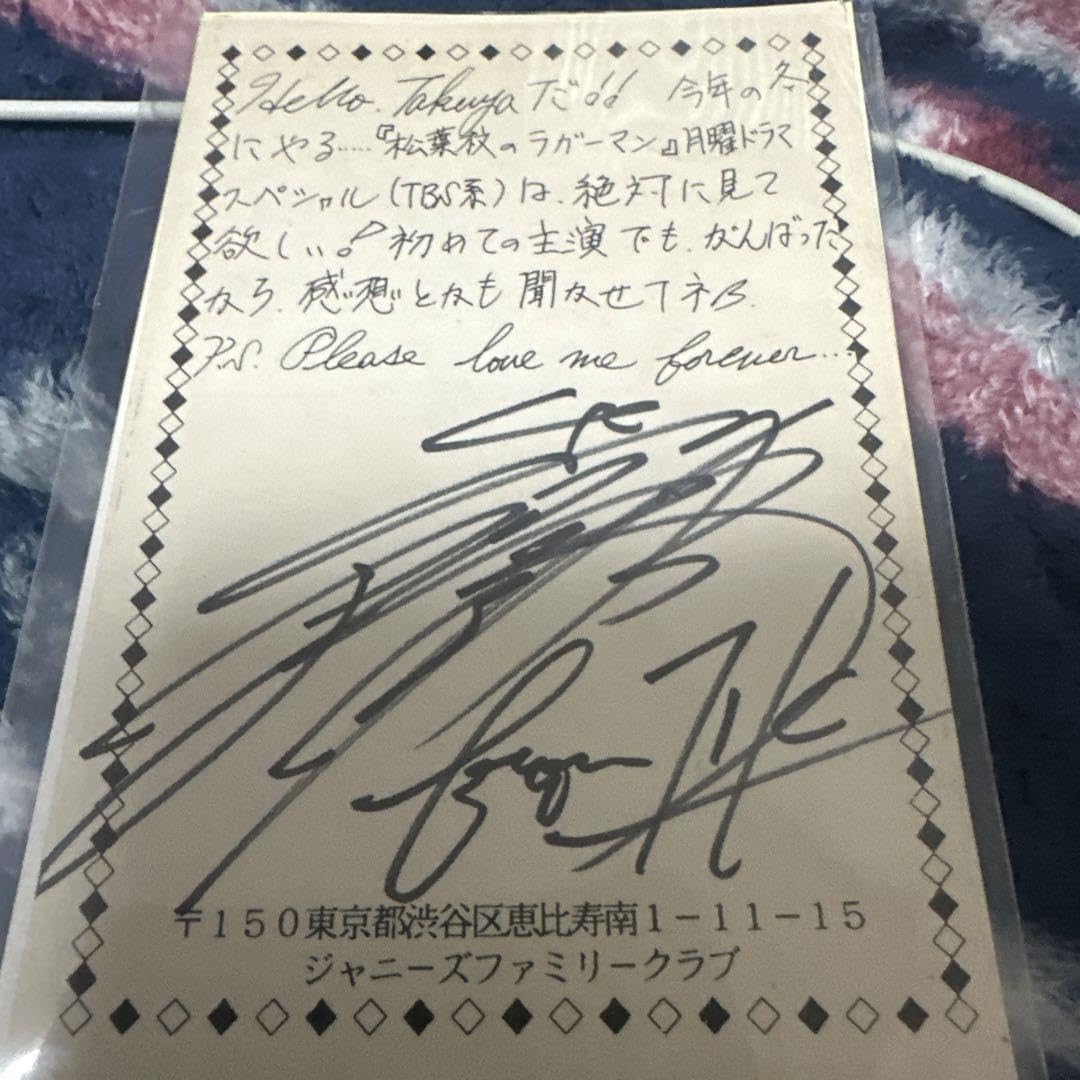 Hello. Takuya だ!! 今年の冬
にやる……『松葉杖のラガーマン』月曜ドラマ
スペシャル(TBS系)は、絶対に見て
欲しい。初めての主演でも、がんばった
から、感想とかも聞かせてネ
P.S. Please love me forever...
〒150東京都渋谷区恵比寿南1-11-15
ジャニーズファミリークラブ